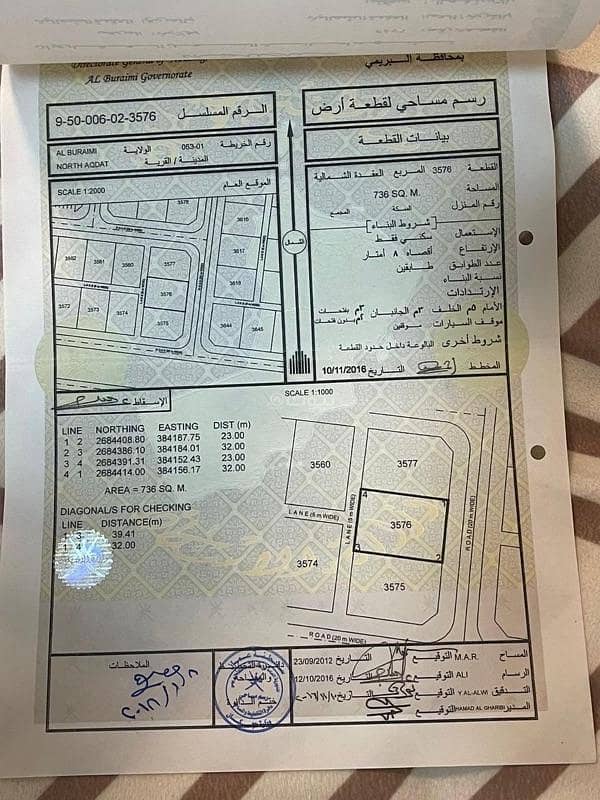 AL Buraimi Governorate
بمحافظة البريمي
رسم مساحي لقطعة أرض
الرقم المسلسل 9-50-006-02-3576
رقم الخريطة 063-01 الولاية AL BURAIMI
المدينة / القرية NORTH AQDAT
بيانات القطعة
القطعة 3576 المربع العقدة الشمالية
المساحة 736 SQ. M.
رقم المنزل السكة المجمع
شروط البناء
الإستعمال سكني فقط
الإرتفاع أقصاه ٨ أمتار
عدد الطوابق طابقين
نسبة البناء
الإرتدادات
الأمام ٥م الخلف ٣م الجانبان ٣م بفتحات
٣م بدون فتحات
موقف السيارات موقفين
شروط أخرى البالوعة داخل حدود القطعة
المخطط التاريخ 10/11/2016
SCALE 1:2000 الموقع العام
3578
3616
3562 3561 3560 3577 3617
3576 3619
3572 3573 3574 3575 3644 3645
الشمال
الإسقاط
SCALE 1:1000
LINE NORTHING EASTING DIST (m)
1 2 2684408.80 384187.75 23.00
2 3 2684386.10 384184.01 32.00
3 4 2684391.31 384152.43 23.00
4 1 2684414.00 384156.17 32.00
AREA = 736 SQ. M.
DIAGONAL/S FOR CHECKING
LINE DISTANCE(m)
1 3 39.41
1 4 32.00
3560
3577
4 1
3576
3 2
3574
3575
LANE (6 m WIDE)
LANE (6 m WIDE)
ROAD (20 m WIDE)
ROAD (20m WIDE)
المساح M.A.R. التوقيع التاريخ 23/09/2012
الرسام ALI التوقيع التاريخ 12/10/2016
التدقيق Y AL-ALWI التوقيع التاريخ
المدير HAMAD AL GHARIBI التوقيع
ختم الدائرة
الملاحظات